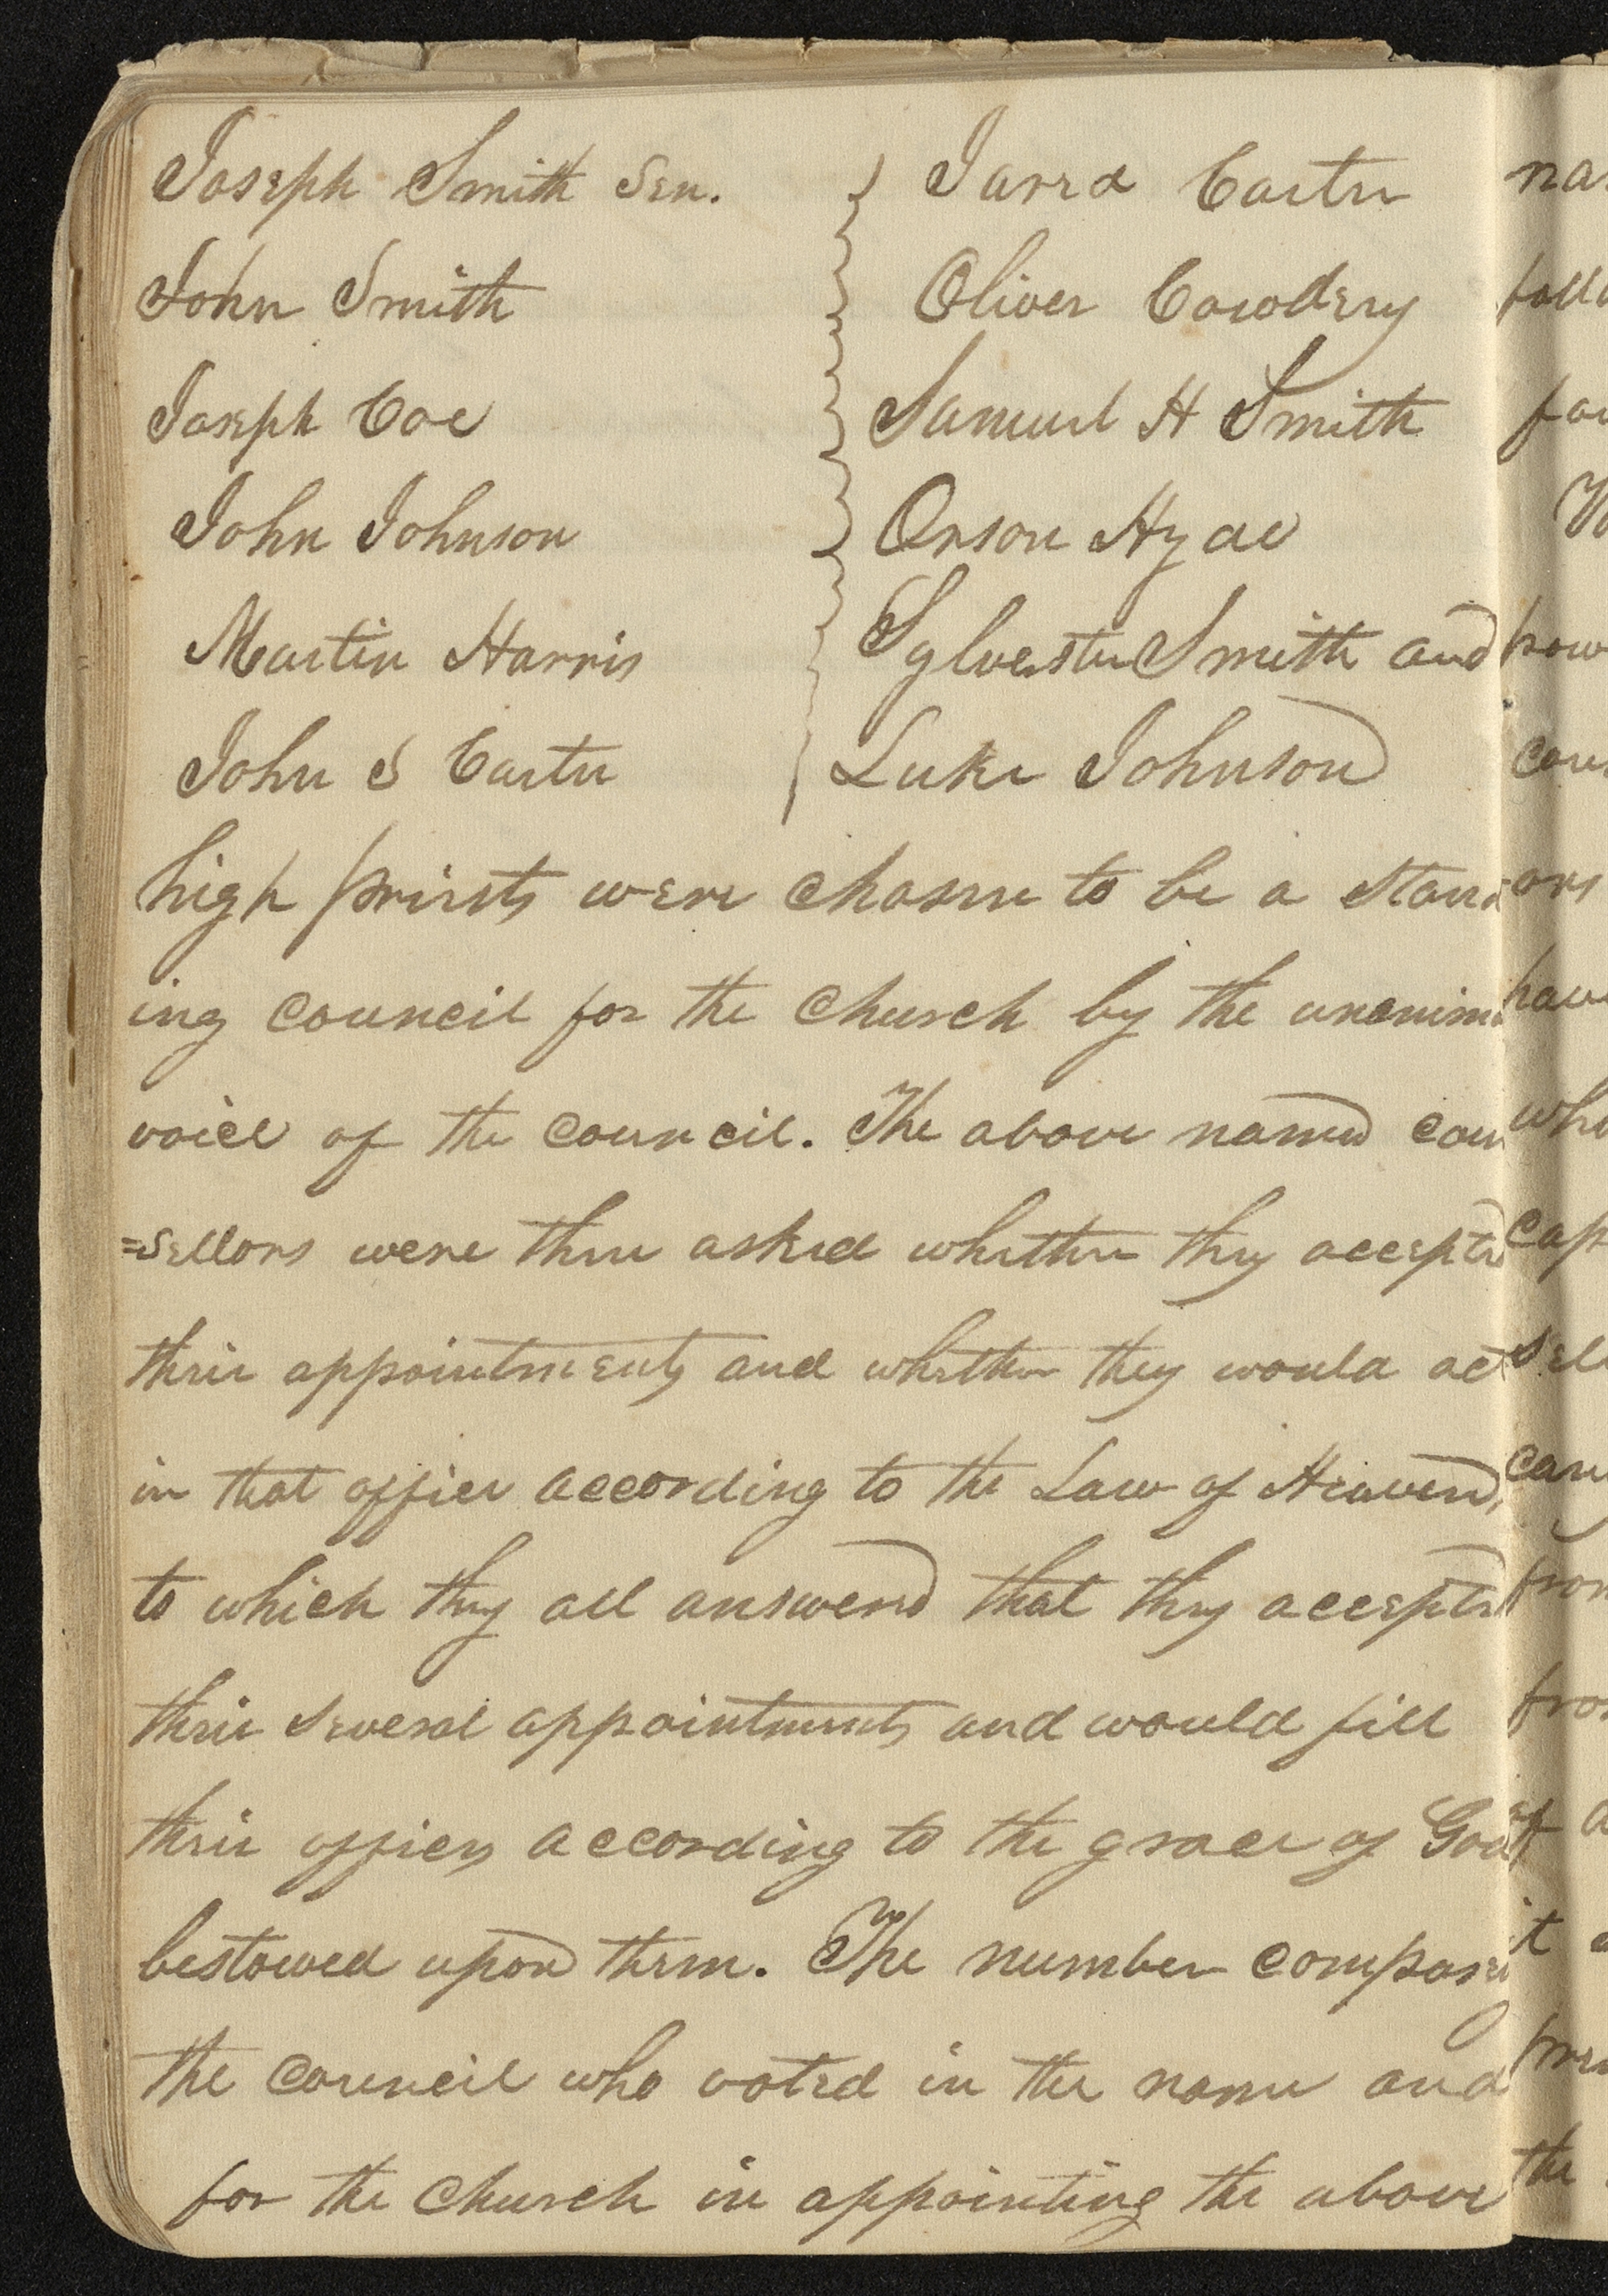 Joseph Smith Sen. } Jared Carter
John Smith } Oliver Cowdery
Joseph Coe } Samuel H Smith
John Johnson } Orson Hyde
Martin Harris } Sylvester Smith and
John S Carter } Luke Johnson
high priests were chosen to be a stand
ing council for the church by the unanim
voice of the council. The above named coun
=sellors were then asked whether they accepted
their appointments and whether they would act
in that office according to the Law of Heaven,
to which they all answered that they accepted
their several appointments and would fill
their offices according to the grace of God
bestowed upon them. The number composing
the council who voted in the name and
for the church in appointing the above